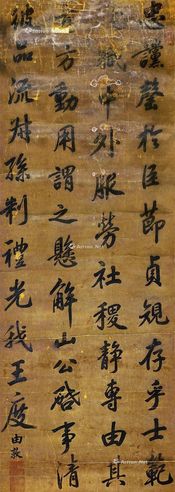 忠讜罄於臣節貞規存乎士範
職中外服勞社稷静專由其
直方動用謂之懸解山公啓事清
彼品流叔孫制禮光我王度
由敦
Artron.Net